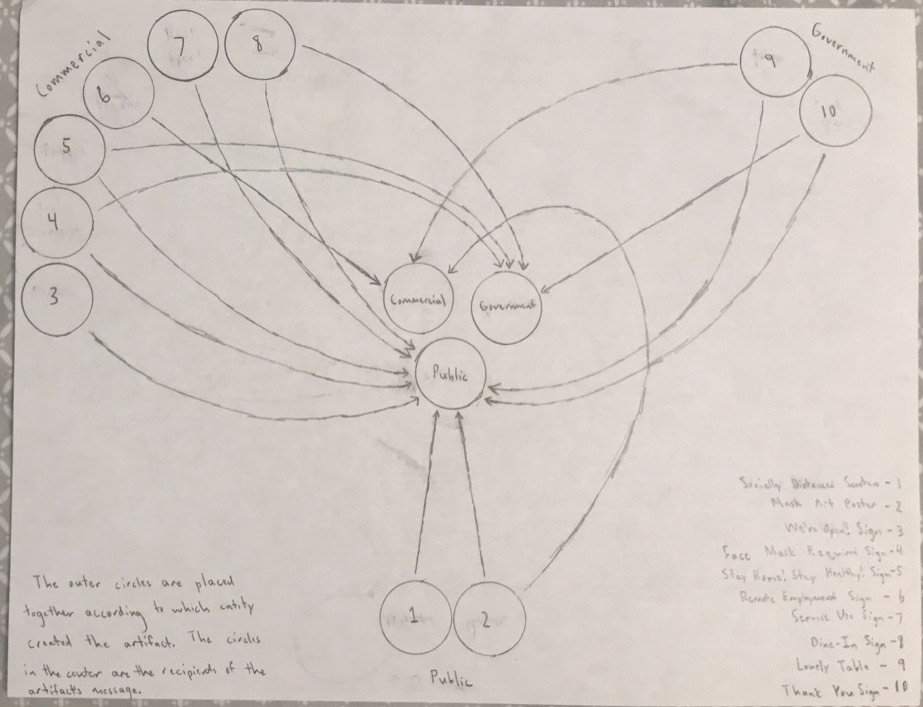 Commercial
7
8
6
5
4
3
Government
9
10
Commercial
Government
Public
1
2
Public
The outer circles are placed
together according to which entity
created the artifact. The circles
in the center are the recipients of the
artifact's message.
Socially Distanced - 1
Mask Art Poster - 2
We're Open! Sign - 3
Face Mask Required Sign - 4
Stay Home! Stay Healthy! Sign - 5
Remote Employment Sign - 6
Service Use Sign - 7
Dine-In Sign - 8
Lonely Table - 9
Thank You Sign - 10